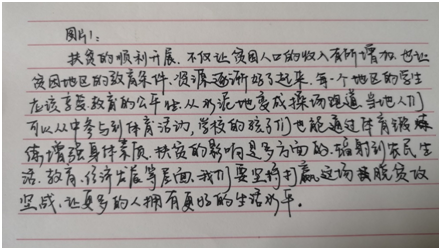 图片1:
扶贫的顺利开展,不仅让贫困人口的收入有所增加,也让
贫困地区的教育条件、资源逐渐好了起来,每一个地区的学生
应该享受教育的公平性。从水泥地变成操场跑道,当地人们
可以从中参与到体育活动,学校的孩子们也能通过体育锻炼
练,增强身体素质。扶贫的影响是多方面的,辐射到农民生
活、教育、经济发展等层面,我们要坚持打赢这场脱贫攻
坚战,让更多的人拥有更好的生活水平。